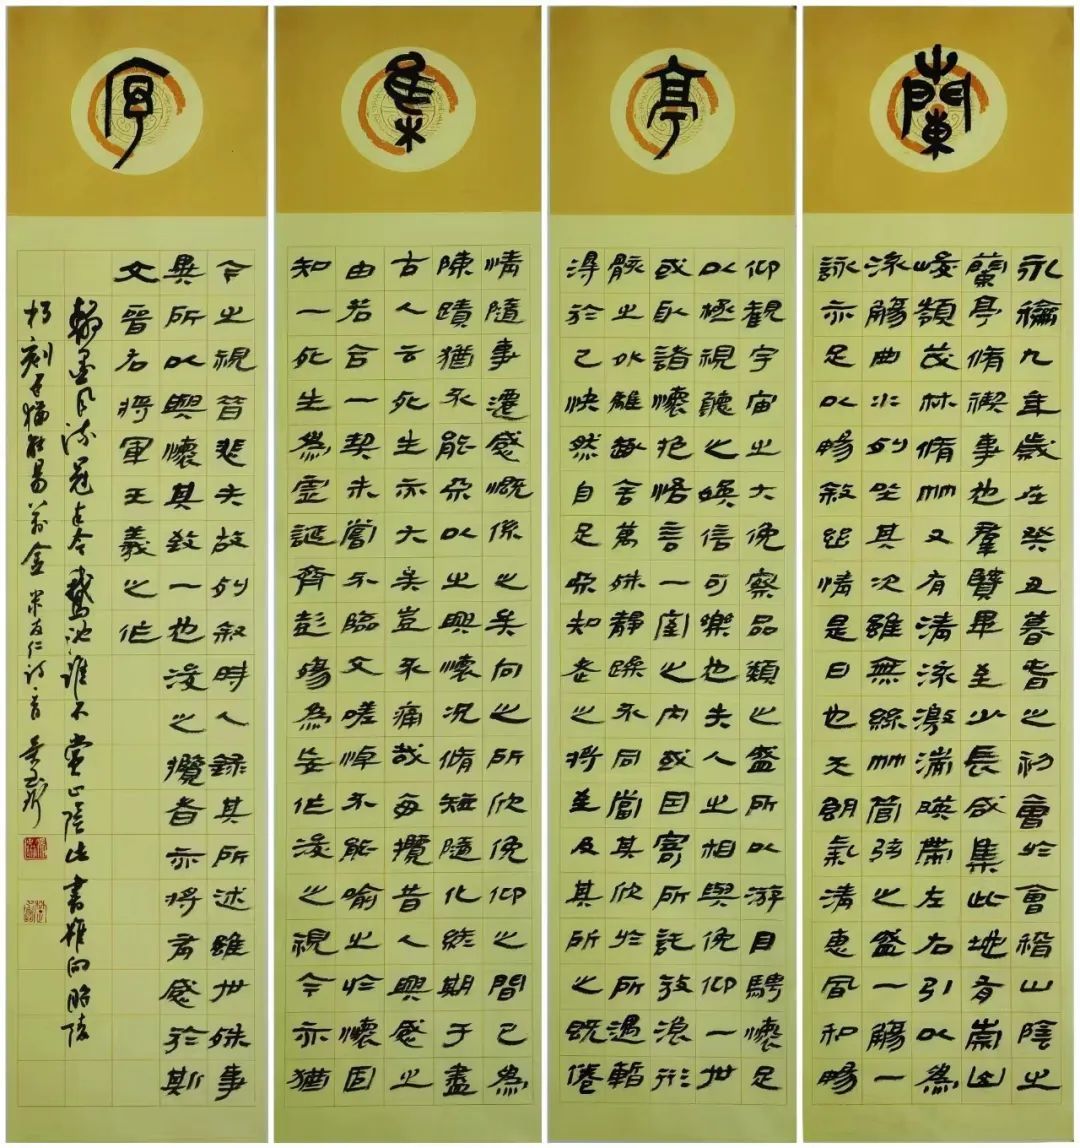 蘭
永龢九年歲在癸丑暮春之初會於會稽山陰之
蘭亭脩禊事也羣賢畢至少長咸集此地有崇山
峻領茂林脩竹又有清流激湍暎帶左右引以為
流觴曲水列坐其次雖無絲竹管弦之盛一觴一
詠亦足以暢敘幽情是日也天朗氣清惠風和暢
亭
仰觀宇宙之大俛察品類之盛所以游目騁懷足
以極視聽之娛信可樂也夫人之相與俛仰一世
或取諸懷抱悟言一室之內或因寄所託放浪形
骸之外雖趣舍萬殊靜躁不同當其欣於所遇暫
得於己快然自足不知老之將至及其所之既倦
集
情隨事遷感慨係之矣向之所欣俛仰之間已為
陳蹟猶不能不以之興懷況脩短隨化終期于盡
古人云死生亦大矣豈不痛哉每攬昔人興感之
由若合一契未嘗不臨文嗟悼不能喻之於懷固
知一死生為虛誕齊彭殤為妄作後之視今亦猶
序
今之視昔悲夫故列敘時人錄其所述雖世殊事
異所以興懷其致一也後之攬者亦將有感於斯
文晉右將軍王羲之作
翰墨風流冠古今鵝池誰不賞山陰此書雖向昭陵
朽刻石猶能易萬金米友仁詩一首